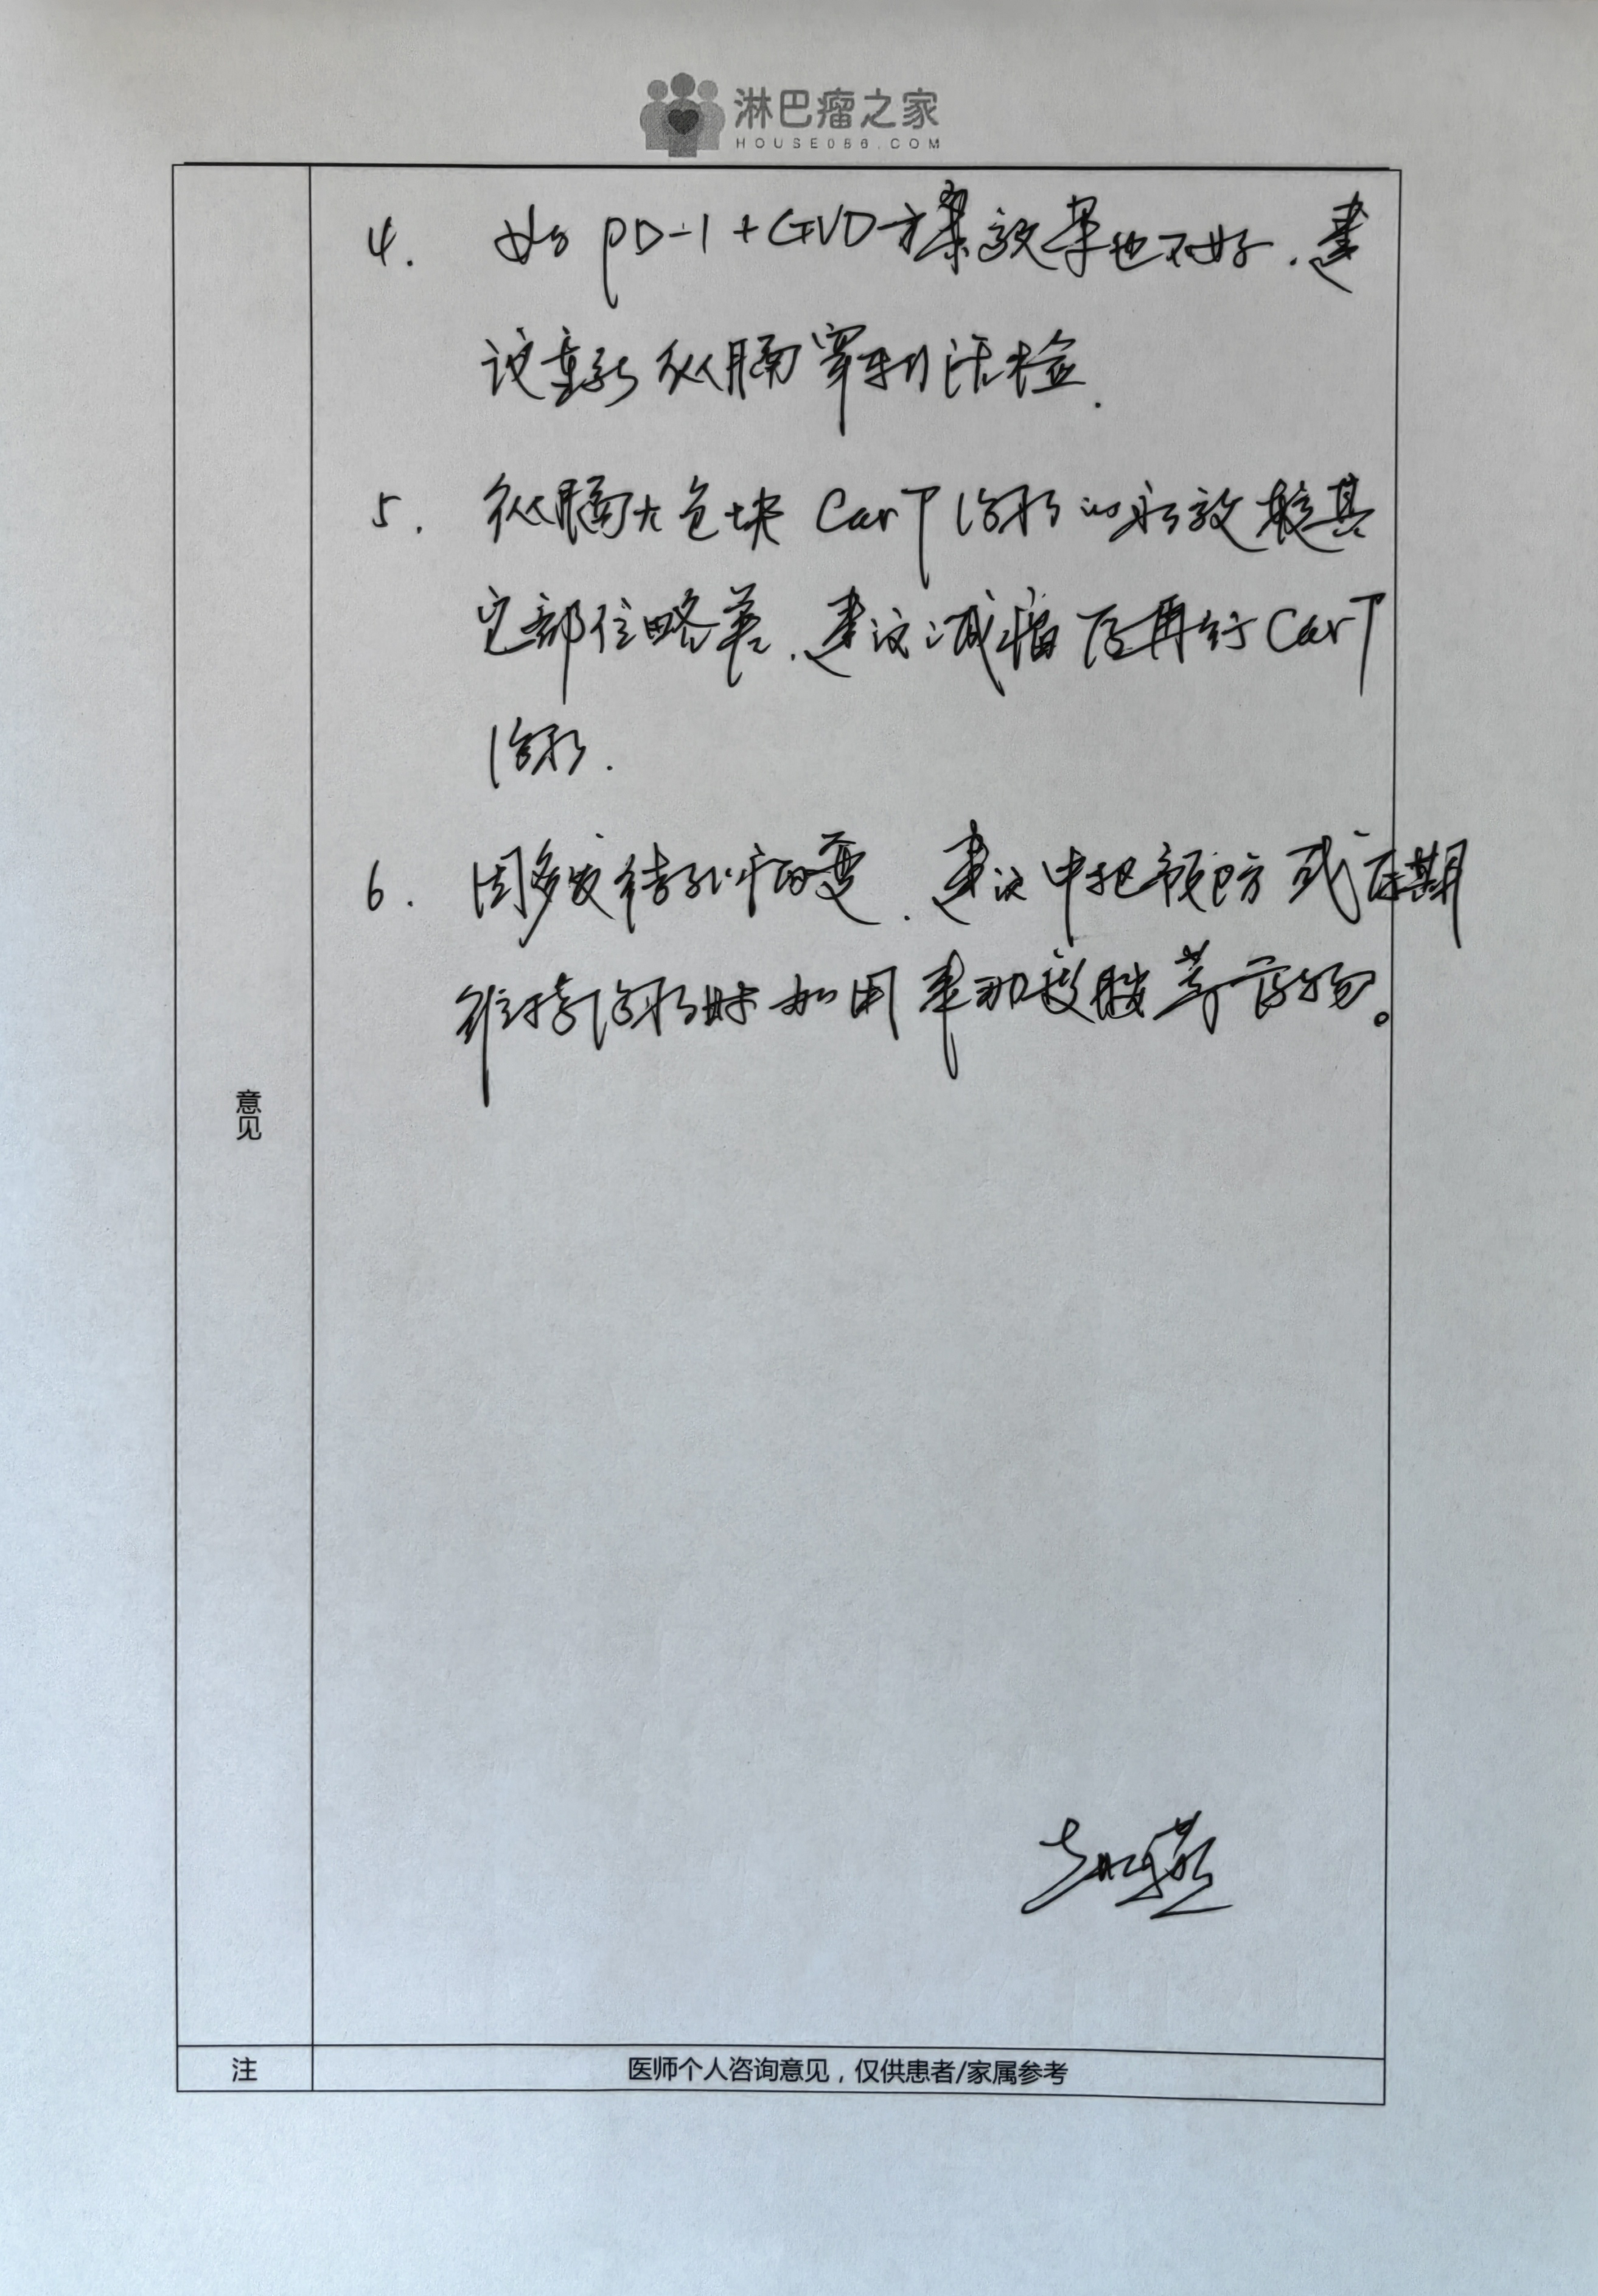 淋巴瘤之家
HOUSE086.COM
4. 如 PD-1+GVD方案效果也不好.建
议重新纵膈穿刺活检.
5. 纵膈大包块 CarT治疗的疗效较其
它部位略差.建议减瘤后再行CarT
治疗.
6. 因多发结外病变.建议中枢预防或后期
维持治疗时如用来那度胺等药物。
意见
注
医师个人咨询意见，仅供患者/家属参考